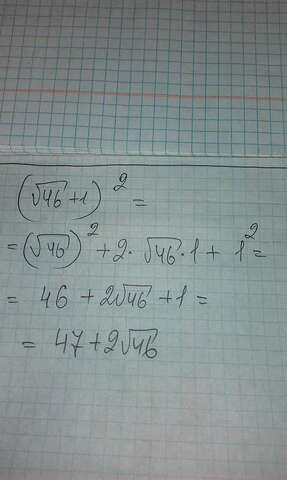 (√46+1)² =
= (√46)² + 2· √46·1 + 1² =
= 46 + 2√46 + 1 =
= 47 + 2√46